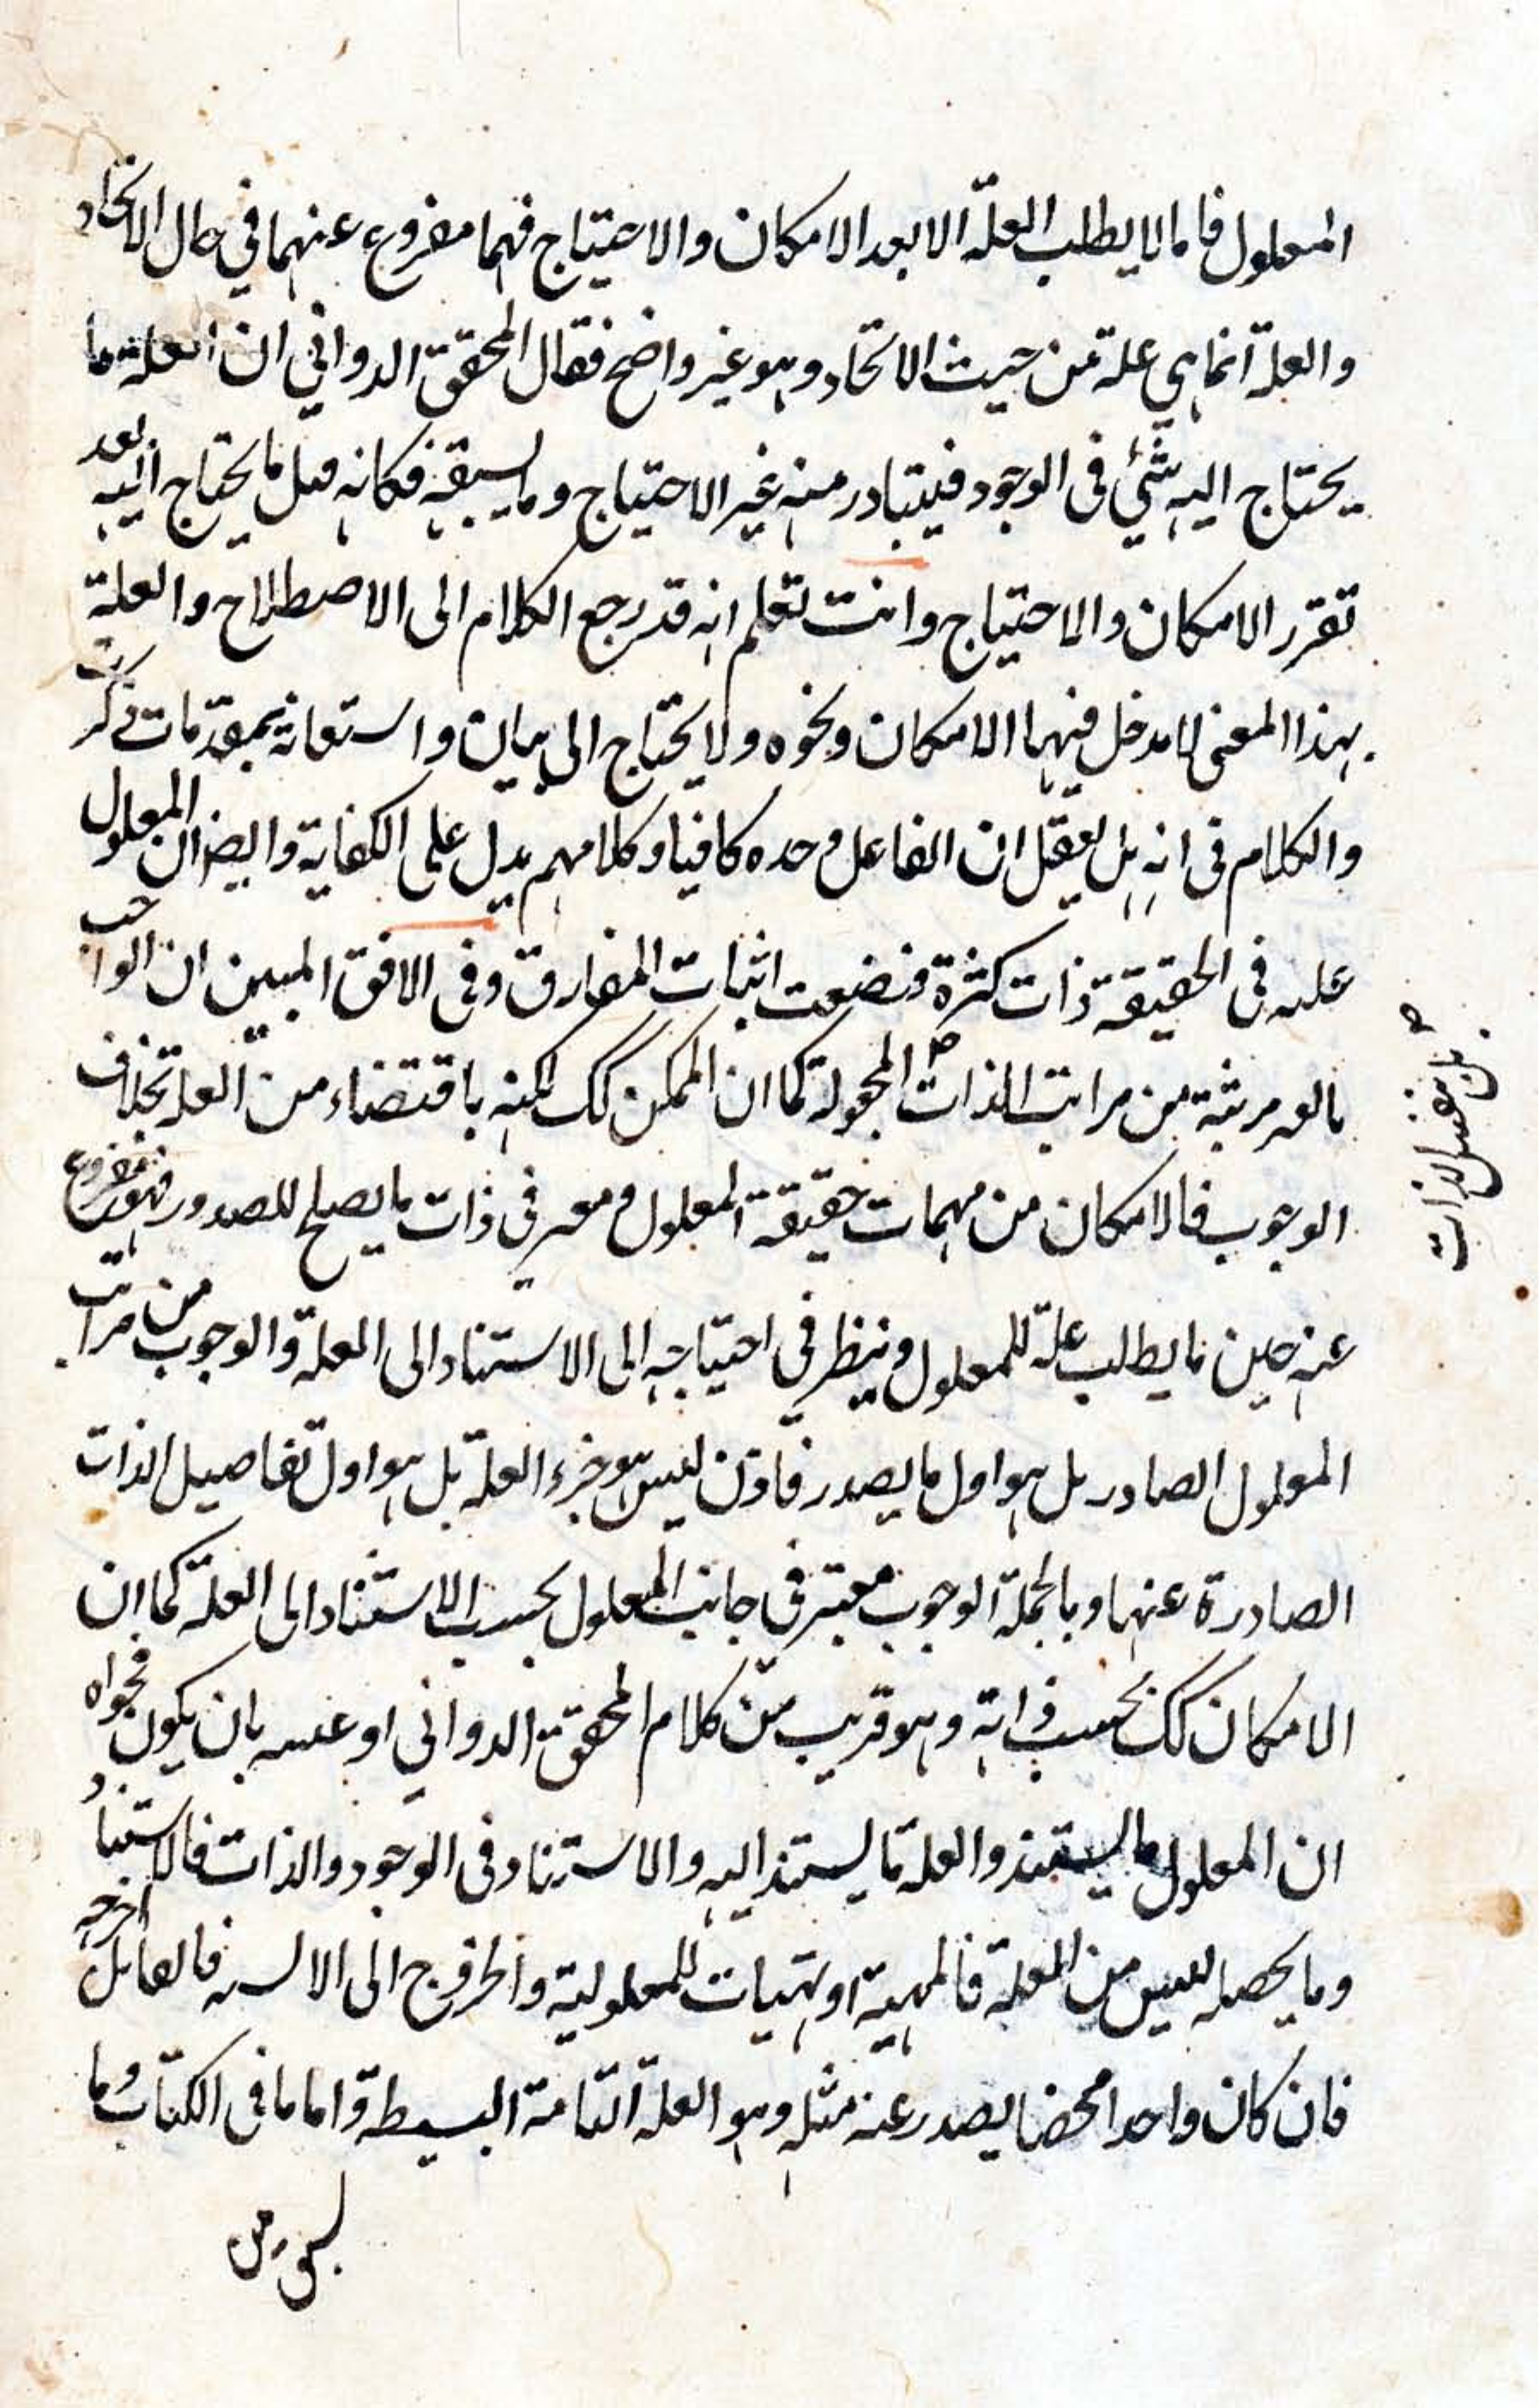 المعلول فاما لا يطلب العلة الا بعد الامكان والاحتياج فهما مفروغ عنهما في حال الاتحاد
والعلة انما هي علة من حيث الاتحاد وهو غير واضح فقال المحقق الدواني ان العلة ما
يحتاج اليه شئ في الوجود فيتبادر منه غير الاحتياج وما يسبقه فكانه قيل ما يحتاج اليه بعد
تقرر الامكان والاحتياج وانت تعلم انه قد رجع الكلام الى الاصطلاح والعلة
بهذا المعنى لا مدخل فيها الامكان ونحوه ولا يحتاج الى بيان واستعانة بمقدمات ذكرت
والكلام في انه هل يعقل ان الفاعل وحده كافيا وكلامهم يدل على الكفاية وايضا ان المعلول
عليه في الحقيقة ذات كثرة فضعف اثبات المفارق وفي الافق المبين ان الواجب
بالغير مرتبة من مراتب الذات المجعولة كما ان الممكن كك لكنه باقتضاء من العلة بخلاف
الوجوب فالامكان من مهمات حقيقة المعلول ومعبر في ذات ما يصلح للصدور فهو مفروغ
عنه حين ما يطلب علة للمعلول وينظر في احتياجه الى الاستناد الى العلة والوجوب من مراتب
المعلول الصادر بل هو اول ما يصدر فاذن ليس هو جزء العلة بل هو اول تفاصيل الذات
الصادرة عنها وبالجملة الوجوب معتبر في جانب المعلول بحسب الاستناد الى العلة كما ان
الامكان كك بحسب ذاته وهو قريب من كلام المحقق الدواني او عينه بان يكون فحواه
ان المعلول ما يستند والعلة ما يستند اليه والاستناد في الوجود والذات فالاستناد
وما يحصله ليس من العلة فالمهية او تهيات للمعلولية والخروج الى الايس فالفاعل اخرجه
فان كان واحدا محضا يصدر عنه مثله وهو العلة التامة البسيطة واما ما في الكتاب وما